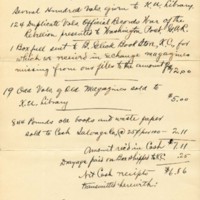 Several Hundred Vols given to K.U. Library.
124 Duplicate Vols Official Records War of the
Rebellion presented to Washington Post G.A.R.
1 Box full sent to Book Store, K.C., for
which we received in exchange magazines
missing from our files to the amount of
$42.00
19 Odd Vols of Old Magazines sold to
K.U. Library $5.00
844 Pounds old books and waste paper
sold to Cash Salvage Co @ 25¢ pr cwt - 2.11
Amount rec'd in Cash $7.11
Drayage paid on Box shipped K.C. .25
Net Cash receipts $6.86
Transmitted herewith.